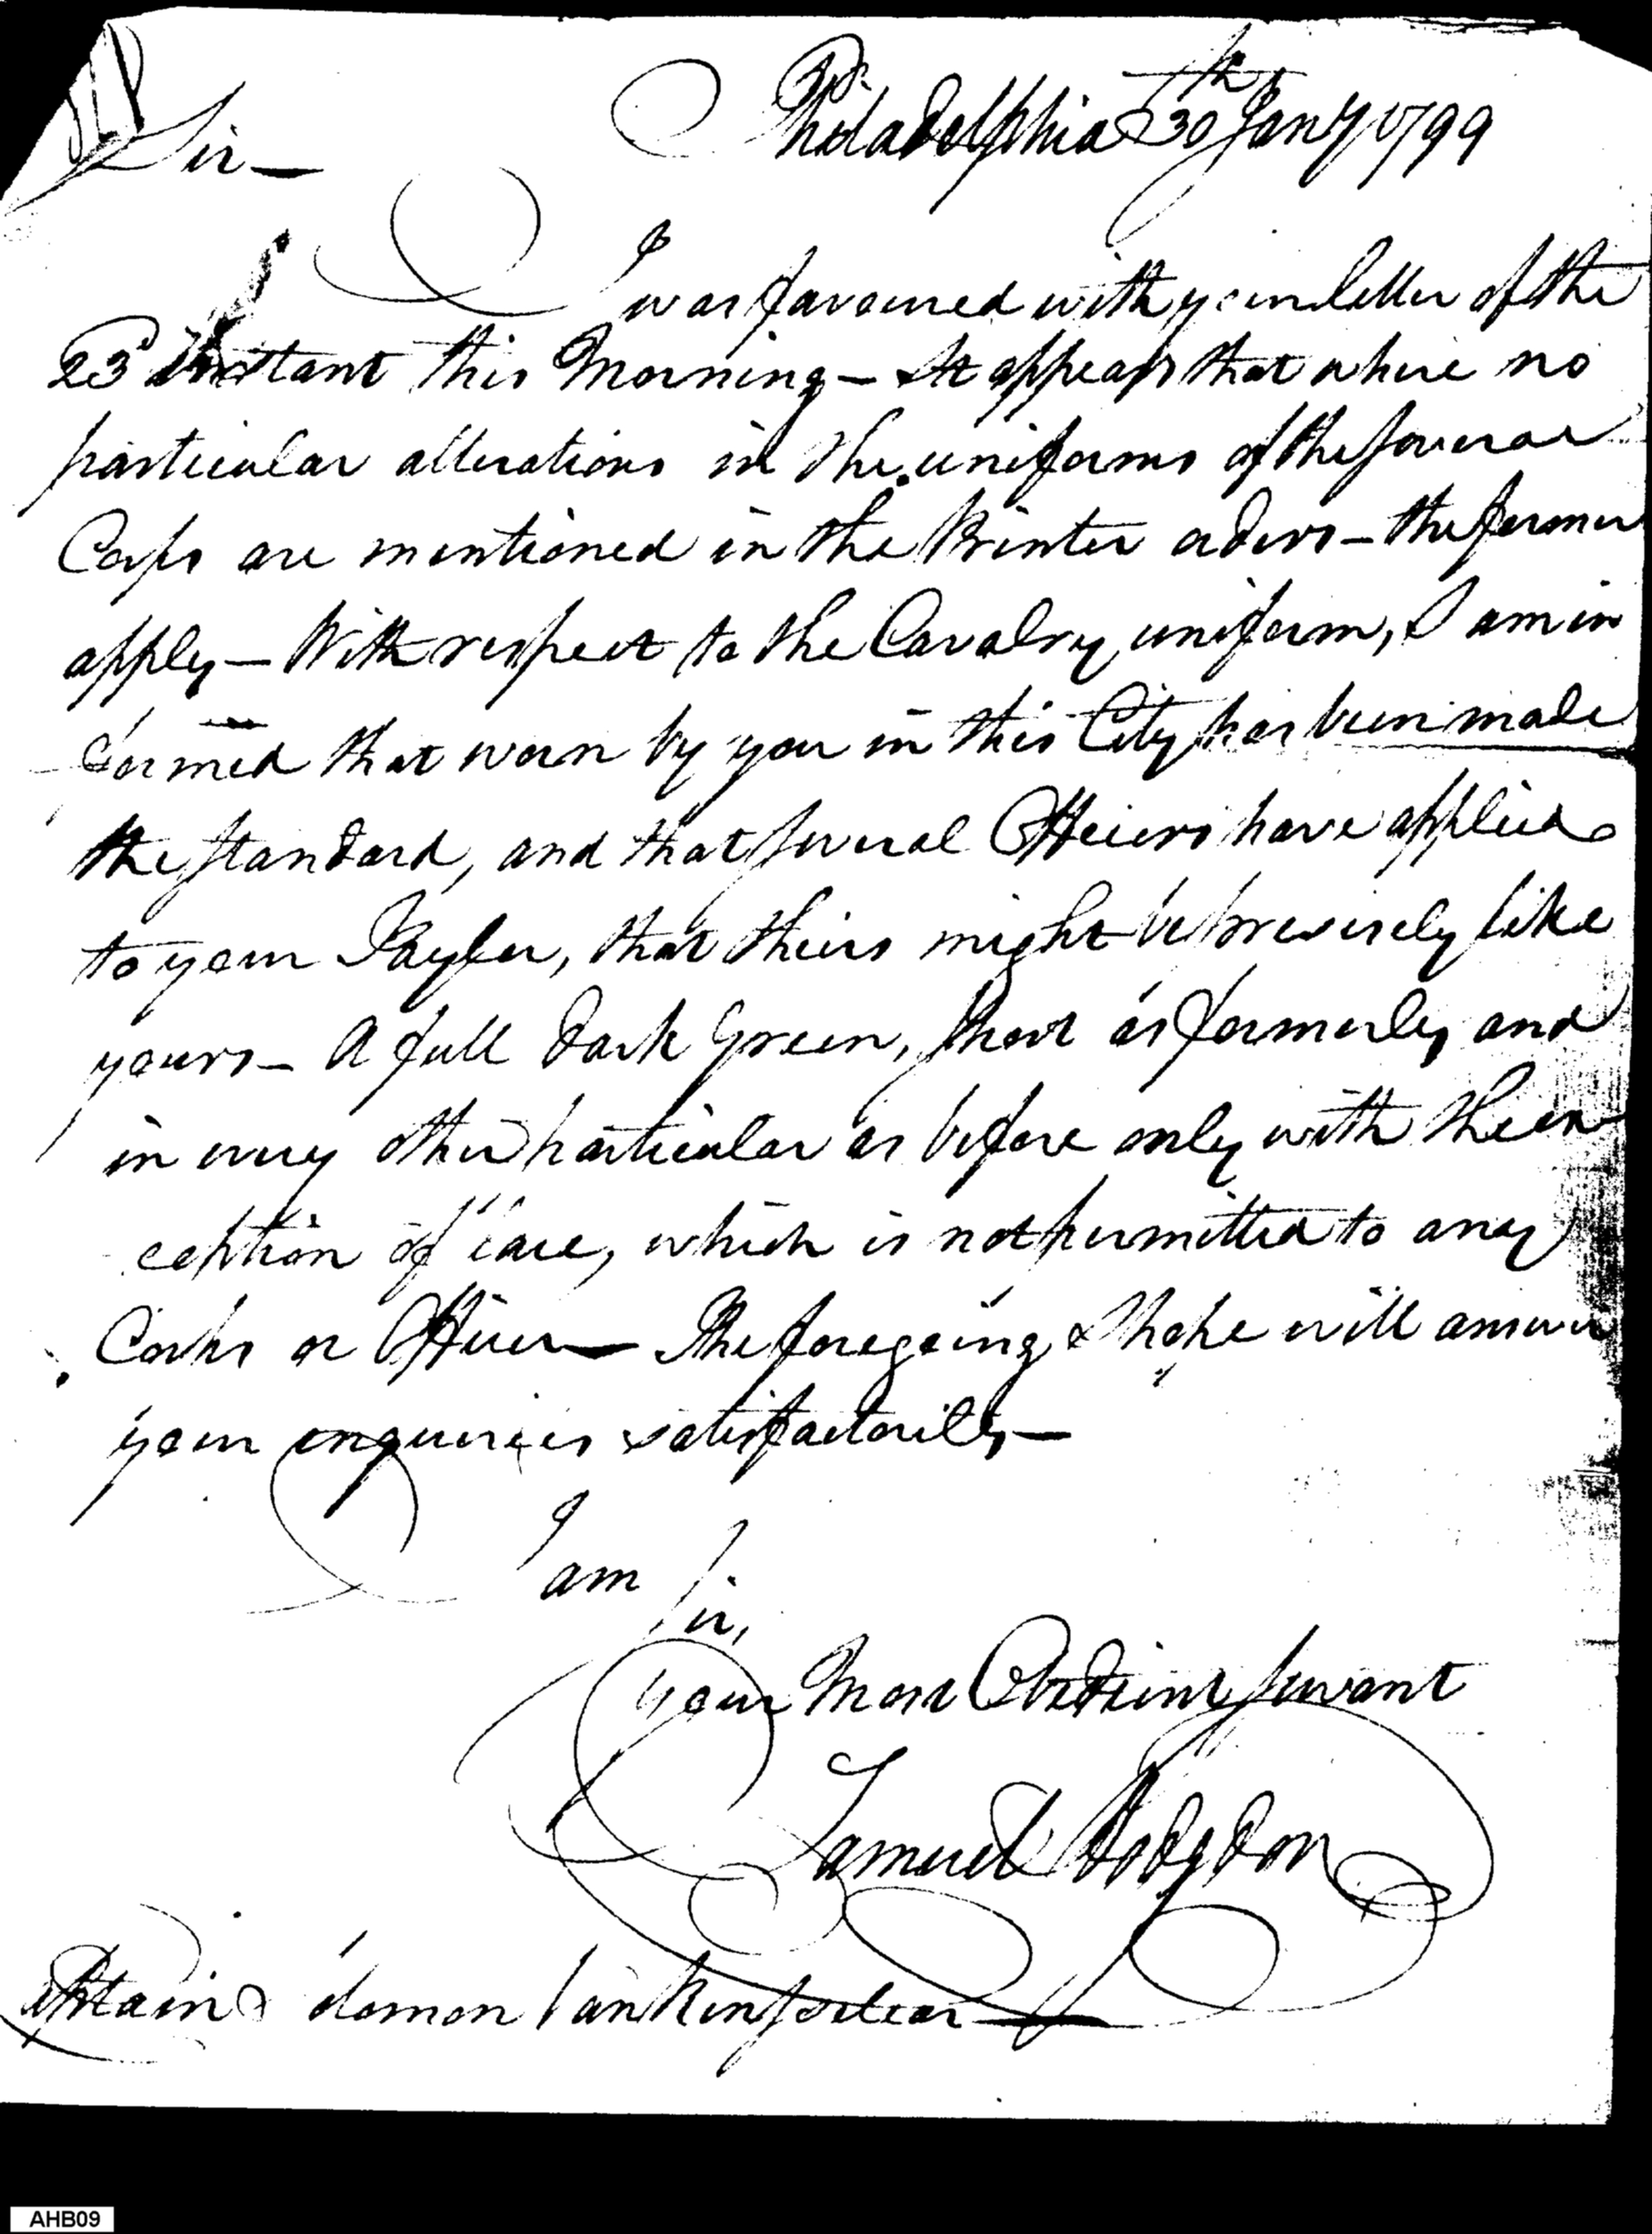 Philadelphia 30th Jany 1799
Sir—
I was favoured with your letter of the
23d Instant this Morning— It appears that where no
particular alterations in the uniforms of the several
Corps are mentioned in the Printed orders— the former
apply— With respect to the Cavalry uniform, I am in
formed that worn by you in this City has been made
the standard, and that several Officers have applied
to your Taylor, that theirs might be precisely like
yours— A full dark Green, short as formerly, and
in every other particular as before only with the ex
ception of lace, which is not permitted to any
Corps or Officer— The foregoing I hope will answer
your enquiries satisfactorily—
I am Sir,
your Most Obedient servant
Samuel Hodgdon
Captain Solomon Van Rensselear
AHB09